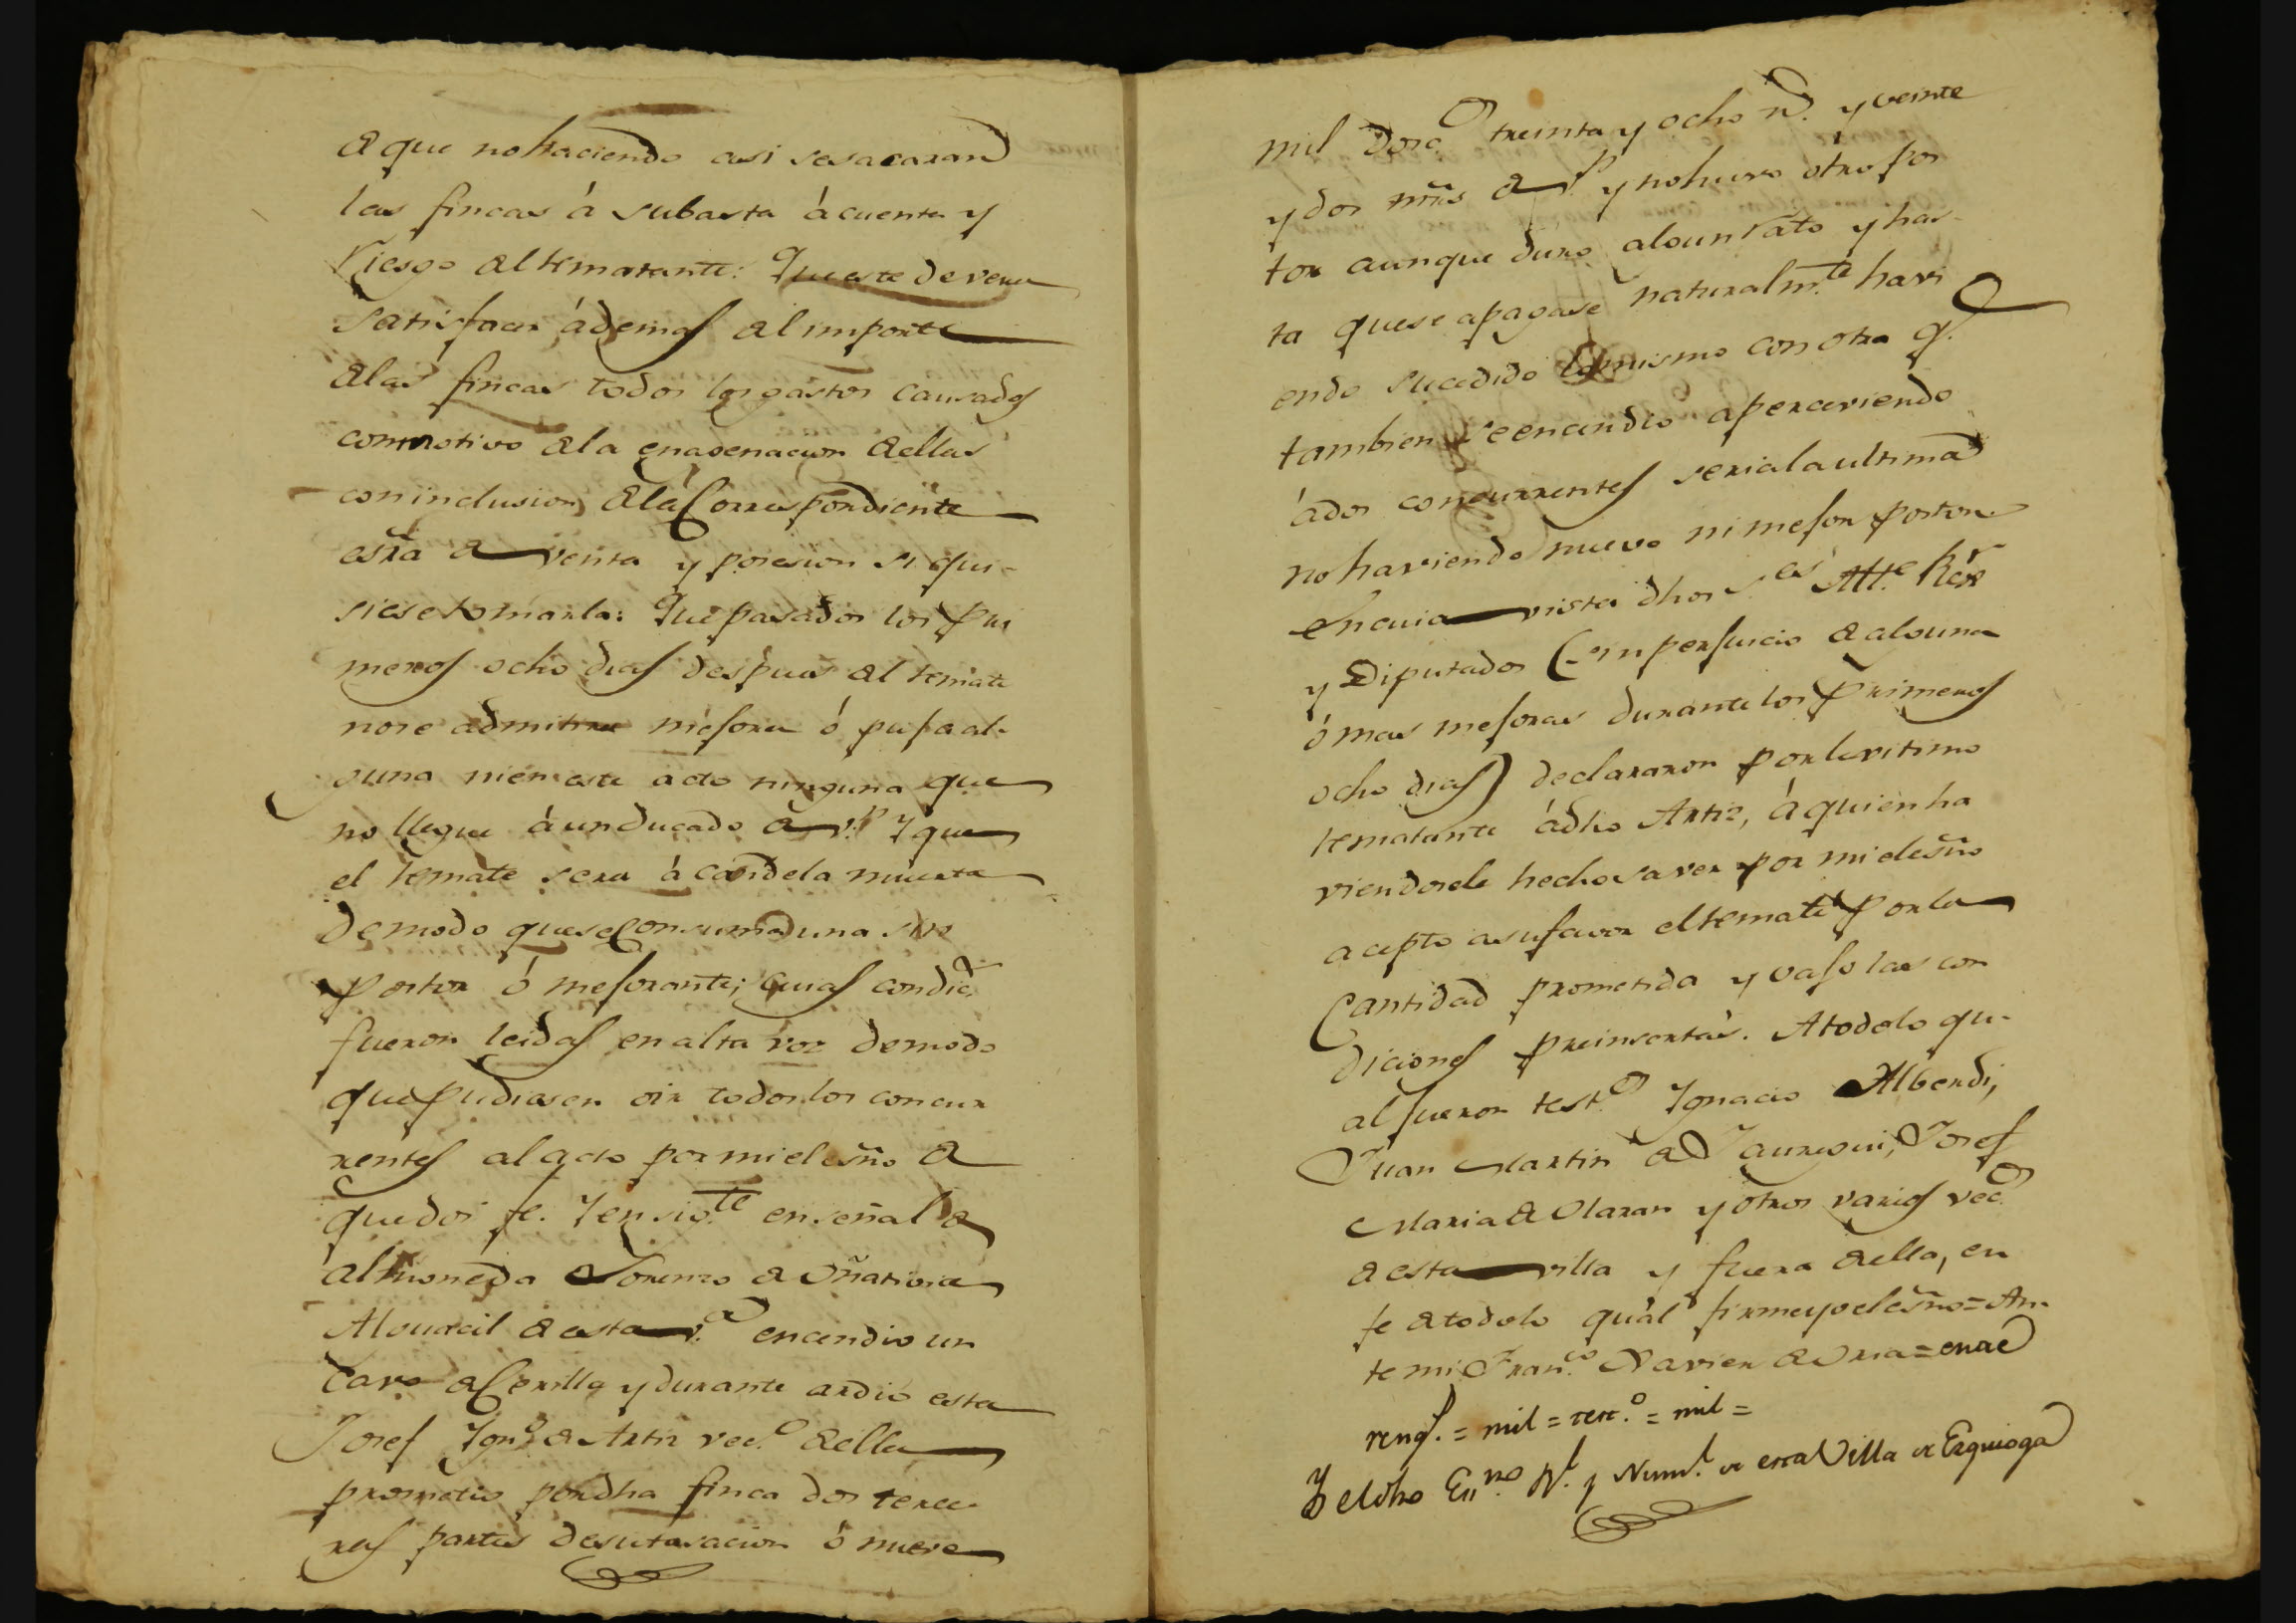 de que no haciendo asi se sacaran
las fincas á subasta á cuenta y
riesgo del rematante: Que este devera
satisfacer ádemas del importe
de las fincas todos los gastos causados
con motivo de la enagenacion de ellas
con inclusion de la Correspondiente
esrã de venta y posesion si qui-
siese tomarla: Que pasados los pri
meros ocho dias despues del remate
no se admitira mejora ó puja al-
guna ni en este acto ninguna que
no llegue á un ducado de v.n Y que
el remate sera á candela muerta
de modo que se Consuma una sin
postor ó mejorante; cuias condic.s
fueron leidas en alta voz de modo
que pudiesen oir todos los concur
rentes al acto por mi el esño de
que doi fe. Y en sig.te en señal de
almoneda Lorenzo de Oñativia
Alguacil de esta v.a encendio un
Cavo de Cerilla y durante ardio esta
Josef Ygn.o de Artiz vec.o de ella
prometio por dha finca dos terce-
ras partes de su tasacion ó nueve
mil dosc.s treinta y ocho r.s y veinte
y dos mr̃s de v.n y no huvo otro pos
tor aunque duro algun rato y has-
ta que se apagase naturalm.te havi
endo sucedido lo mismo con otra q.e
tambien se encendio aperceviendo
á dos concurrentes seria la ultima
no haviendo nuevo ni mejor postor.
En cuia vista dhos S.es Alc.e Rex.r
y Diputados (sin perjuicio de alguna
ó mas mejoras durante los primeros
ocho dias) declararon por lexitimo
rematante á dho Artiz, á quien ha
viendosele hecho saver por mi el esño
acepto a su favor el remate por la
Cantidad prometida y vajo las con
diciones preinsertas. A todo lo qu-
al fueron test.s Ygnacio Alberdi,
Juan Martin de Jauregui, Josef
Maria de Olaran y otros varios vec.s
de esta villa y fuera de ella, en
fe de todo lo qual firme yo el esño = An-
te mi Fran.co Xavier de Oria = enre
reng.s = mil = terc.o = mil =
Yo el dho Es.no R.l y Num.l de esta Villa de Ezquioga